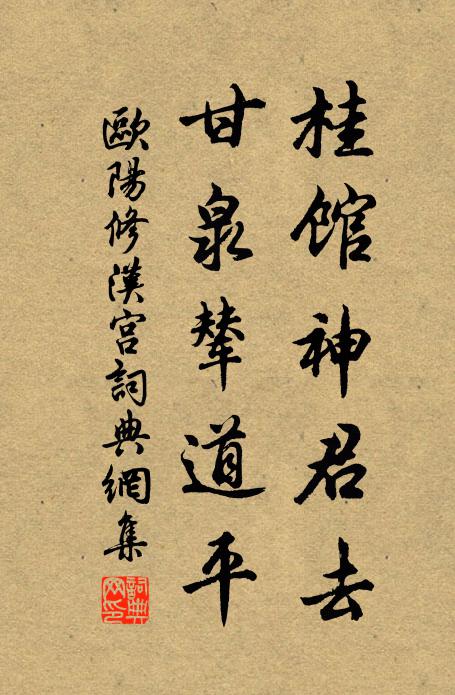 桂館神君去
甘泉輦道平
歐陽修漢宮詞典網集
詞典网印